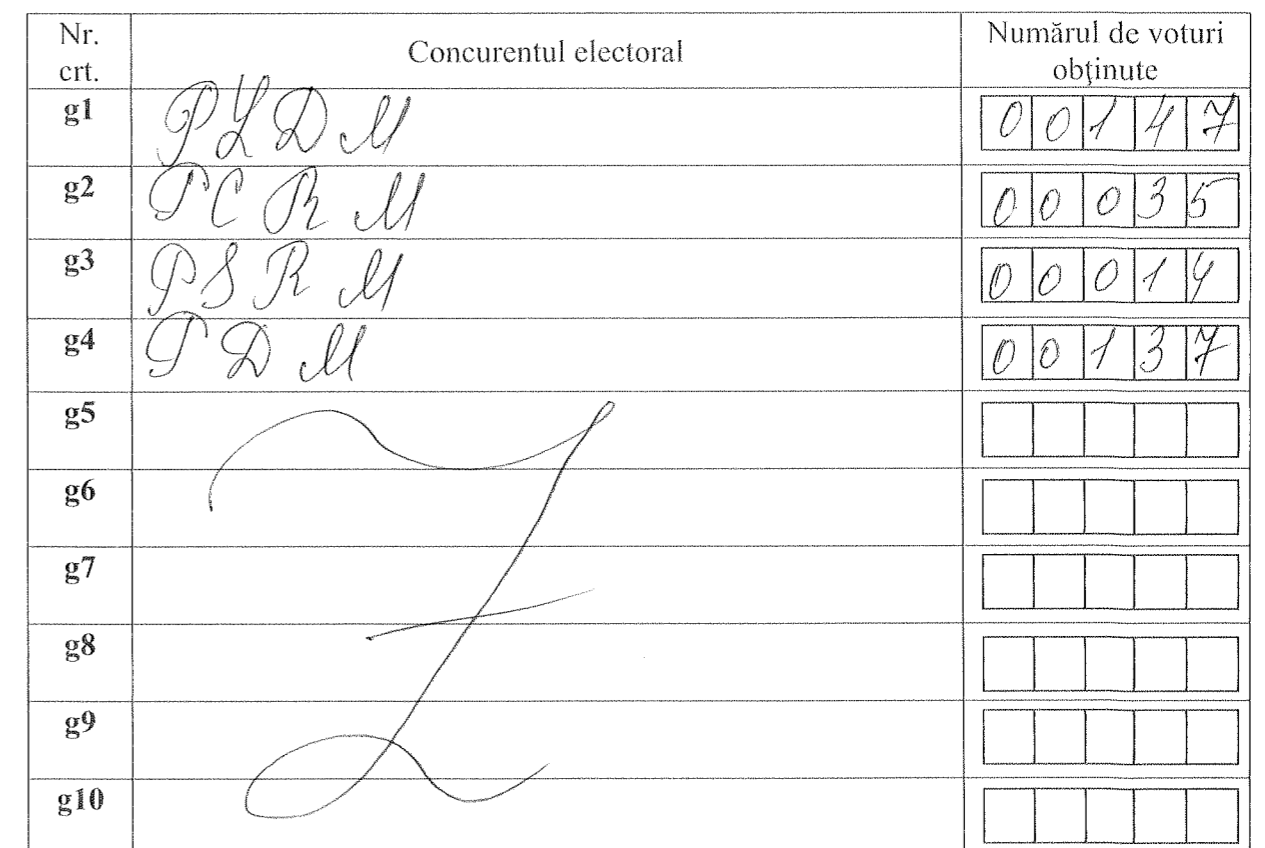 Nr. crt. Concurentul electoral Numărul de voturi obţinute
g1 PLDM 00147
g2 PCRM 00035
g3 PSRM 00014
g4 PDM 00137
g5
g6
g7
g8
g9
g10